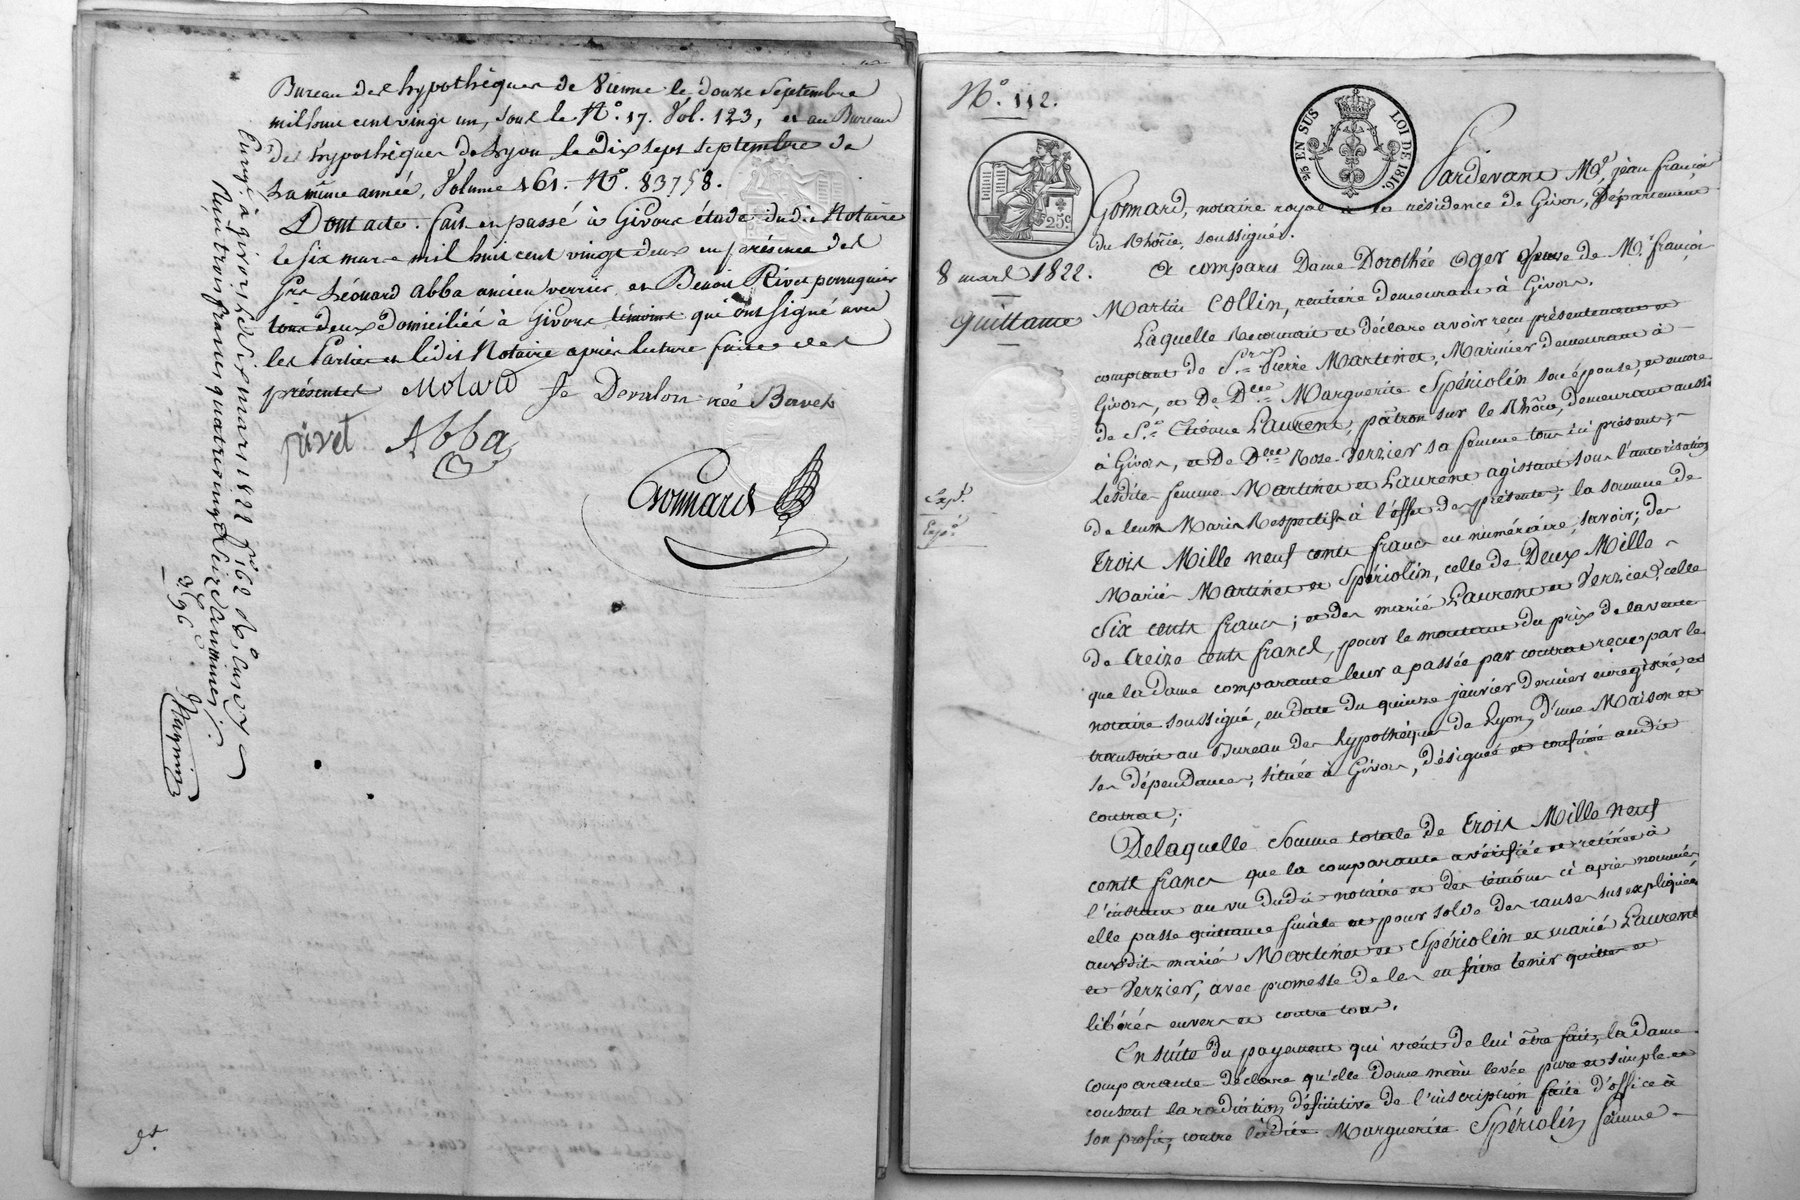 Bureau des hypothèques de Vienne le douze Septembre
mil huit cent vingt un, sous le N.o 17. Vol. 123, et au Bureau
des hypothèques de Lyon le dix sept Septembre de
la même année, Volume 161. N.o 83758.
Dont acte. fait et passé à Givors étude dudit Notaire
le six mars mil huit cent vingt deux en présence des
Srs Léonard Abba ancien verrier et Benoit Rivet perruquier
tous deux domiciliés à Givors témoins qui ont signé avec
les Parties et ledit Notaire après lecture faite des
présentes Molard Je Devalon née Bavet
rivet Abba
Gonnard
Enregé à givors le dix mars 1822 fo 62 Ro Case 7
Reçu trois francs quatre vingt seize centimes
3f 96c
gt.
N.o 112.
25c
8 mars 1822.
Quittance
Exp.
EN SUS
LOI DE 1816.
Pardevant Me. jean françois
Gonnard, notaire royal à la résidence de Givors, Département
du Rhône, soussigné.
A comparu Dame Dorothée Oger Epouse de Mr. françois
Martin Collin, rentière demeurant à Givors.
Laquelle Reconnait et déclare avoir reçu présentement et
comptant de Sr. Pierre Martinet, Marinier demeurant à
Givors, et De Dlle Marguerite Spériolin son épouse, et encore
de Sr. Etienne Laurent, pâtron sur le Rhône, demeurant aussi
à Givors, et De Dlle Rose Verzier sa femme tous ici présents,
lesdites femmes Martinet et Laurent agissant sous l'autorisation
de leurs Maris Respectifs à l'effet des présentes; la somme de
Trois Mille neuf cents francs en numéraire, savoir; des
Mariés Martinet et Spériolin, celle de Deux Mille
Six cents francs; et des mariés Laurent et Verzier, celle
de Treize cents francs, pour le montant du prix de la vente
que la dame comparante leur a passée par contrat reçu par le
notaire soussigné, en date du quinze janvier dernier enregistré, et
transcrit au Bureau des hypothèques de Lyon, d'une Maison et
ses dépendances, située à Givors, désignée et confinée audit
contrat;
Delaquelle Somme totale de Trois Mille neuf
cents francs que la comparante a vérifiée et retirée à
l'instant au vu dudit notaire et des témoins ci après nommés,
elle passe quittance finale et pour solde des causes sus expliquées
auxdits mariés Martinet et Spériolin et mariés Laurent
et Verzier, avec promesse de les en faire tenir quittes et
libérés envers et contre tous.
En suite du payement qui vient de lui être fait, la dame
comparante déclare qu'elle donne main levée pure et simple et
consent la radiation définitive de l'inscription faite d'office à
son profit, contre ladite Marguerite Spériolin femme